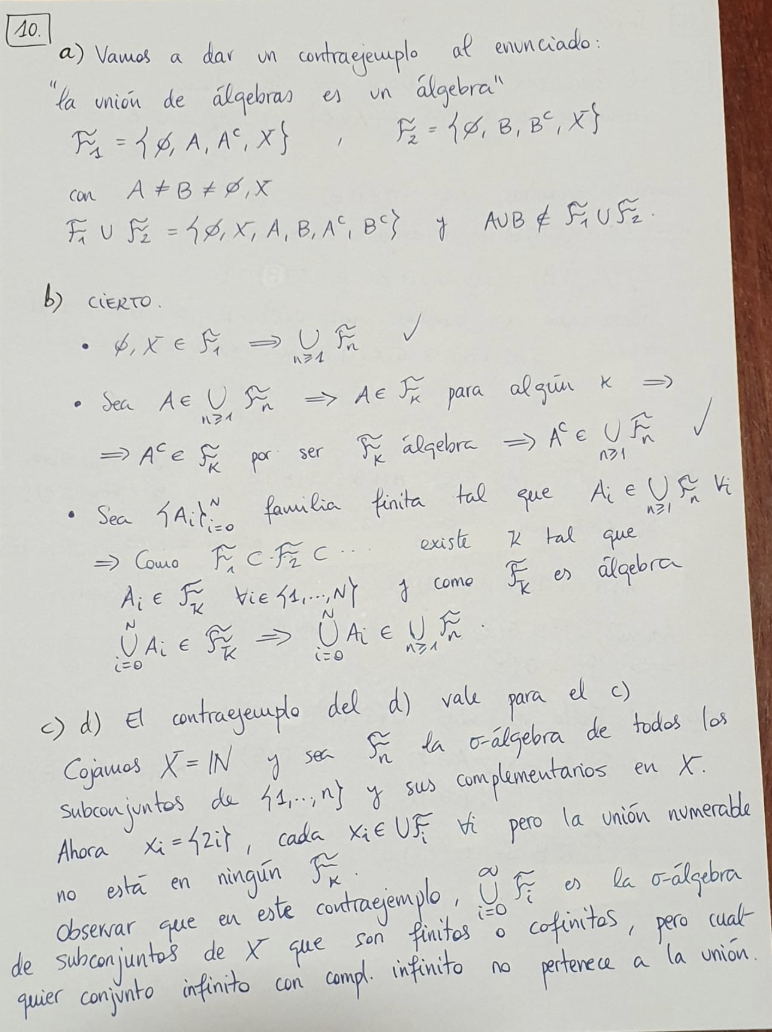 10.
a) Vamos a dar un contraejemplo al enunciado:
"la unión de álgebras es un álgebra"
F̃₁ = {∅, A, Aᶜ, X} , F̃₂ = {∅, B, Bᶜ, X}
con A ≠ B ≠ ∅, X
F̃₁ ∪ F̃₂ = {∅, X, A, B, Aᶜ, Bᶜ} y A∪B ∉ F̃₁ ∪ F̃₂.
b) CIERTO.
• ∅, X ∈ F̃₁ ⟹ ∪_{n≥1} F̃ₙ ✓
• Sea A ∈ ∪_{n≥1} F̃ₙ ⟹ A ∈ F̃_K para algún K ⟹
⟹ Aᶜ ∈ F̃_K por ser F̃_K álgebra ⟹ Aᶜ ∈ ∪_{n≥1} F̃ₙ ✓
• Sea {Ai}_{i=0}^N familia finita tal que Ai ∈ ∪_{n≥1} F̃ₙ ∀i
⟹ Como F̃₁ ⊂ F̃₂ ⊂ ... existe K tal que
Ai ∈ F̃_K ∀i∈{1,...,N} y como F̃_K es álgebra
∪_{i=0}^N Ai ∈ F̃_K ⟹ ∪_{i=0}^N Ai ∈ ∪_{n≥1} F̃ₙ.
c) d) El contraejemplo del d) vale para el c)
Cojamos X = ℕ y sea F̃ₙ la σ-álgebra de todos los
subconjuntos de {1,...,n} y sus complementarios en X.
Ahora xi = {2i}, cada xi ∈ ∪F̃i ∀i pero la unión numerable
no está en ningún F̃_K.
Observar que en este contraejemplo, ∪_{i=0}^∞ F̃i es la σ-álgebra
de subconjuntos de X que son finitos o cofinitos, pero cual-
quier conjunto infinito con compl. infinito no pertenece a la unión.